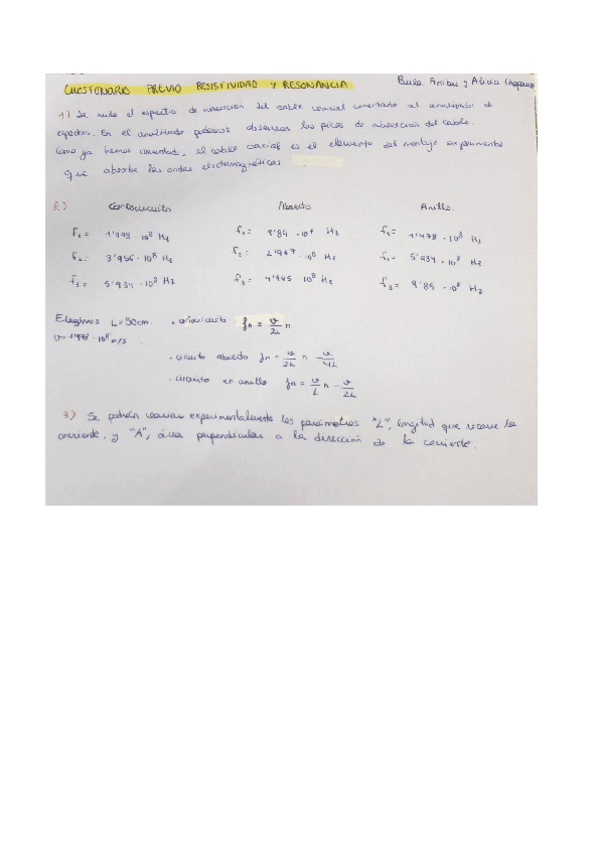 CUESTIONARIO PREVIO RESISTIVIDAD Y RESONANCIA
y Alicia
1) Se mide el espectro de absorción del cable coaxial conectado al analizador de
espectros. En el analizador podemos observar los picos de absorción del cable.
Como ya hemos comentado, el cable coaxial es el elemento del montaje experimental
que absorbe las ondas electromagnéticas
2) Cortocircuito Abierto Anillo.
f₁ = 1'978 · 10⁸ Hz f₁ = 9'84 · 10⁷ Hz f₁ = 1'978 · 10⁸ Hz
f₂ = 3'956 · 10⁸ Hz f₂ = 2'967 · 10⁸ Hz f₂ = 5'934 · 10⁸ Hz
f₃ = 5'934 · 10⁸ Hz f₃ = 4'945 · 10⁸ Hz f₃ = 9'85 · 10⁸ Hz
Elegimos L = 50cm. · cortocircuito fn = v/2L n
v = 1'978 · 10⁸ m/s
· circuito abierto fn = v/2L n - v/4L
· circuito en anillo fn = v/L n - v/2L
3) Se podrán variar experimentalmente los parámetros "L", longitud que recorre la
corriente, y "A", área perpendicular a la dirección de la corriente.